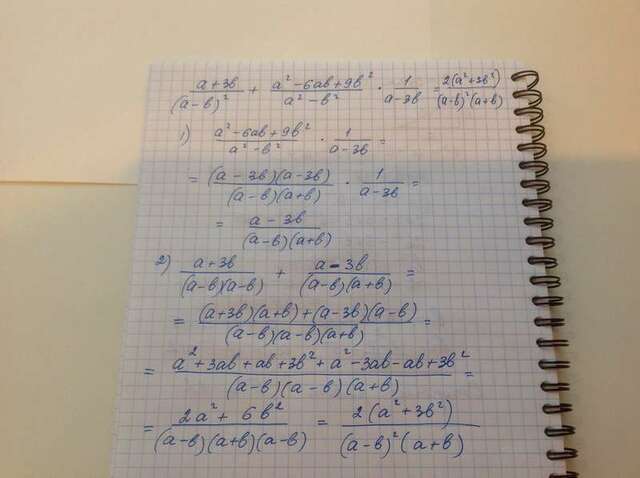 (a+3b)/(a-b)² + (a²-6ab+9b²)/(a²-b²) · 1/(a-3b) = 2(a²+3b²)/((a-b)²(a+b))
1) (a²-6ab+9b²)/(a²-b²) · 1/(a-3b) =
= ((a-3b)(a-3b))/((a-b)(a+b)) · 1/(a-3b) =
= (a-3b)/((a-b)(a+b))
2) (a+3b)/((a-b)(a-b)) + (a-3b)/((a-b)(a+b)) =
= ((a+3b)(a+b)+(a-3b)(a-b))/((a-b)(a-b)(a+b)) =
= (a²+3ab+ab+3b²+a²-3ab-ab+3b²)/((a-b)(a-b)(a+b)) =
= (2a²+6b²)/((a-b)(a+b)(a-b)) = 2(a²+3b²)/((a-b)²(a+b))